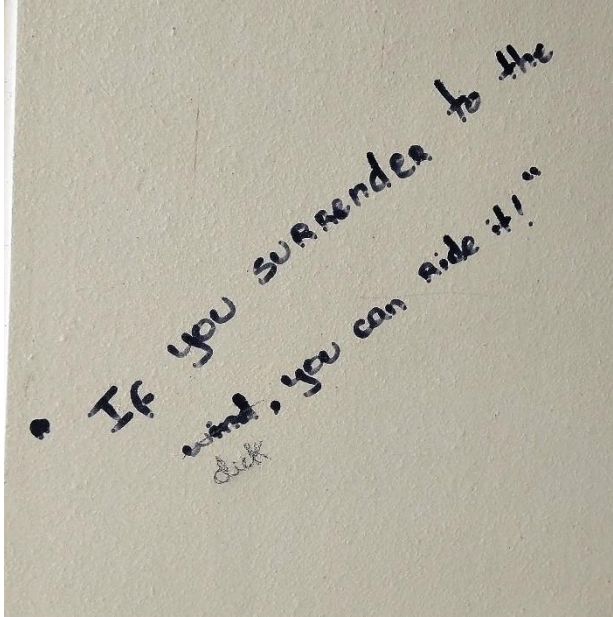 • If you surrender to the
wind, you can ride it!"
dick